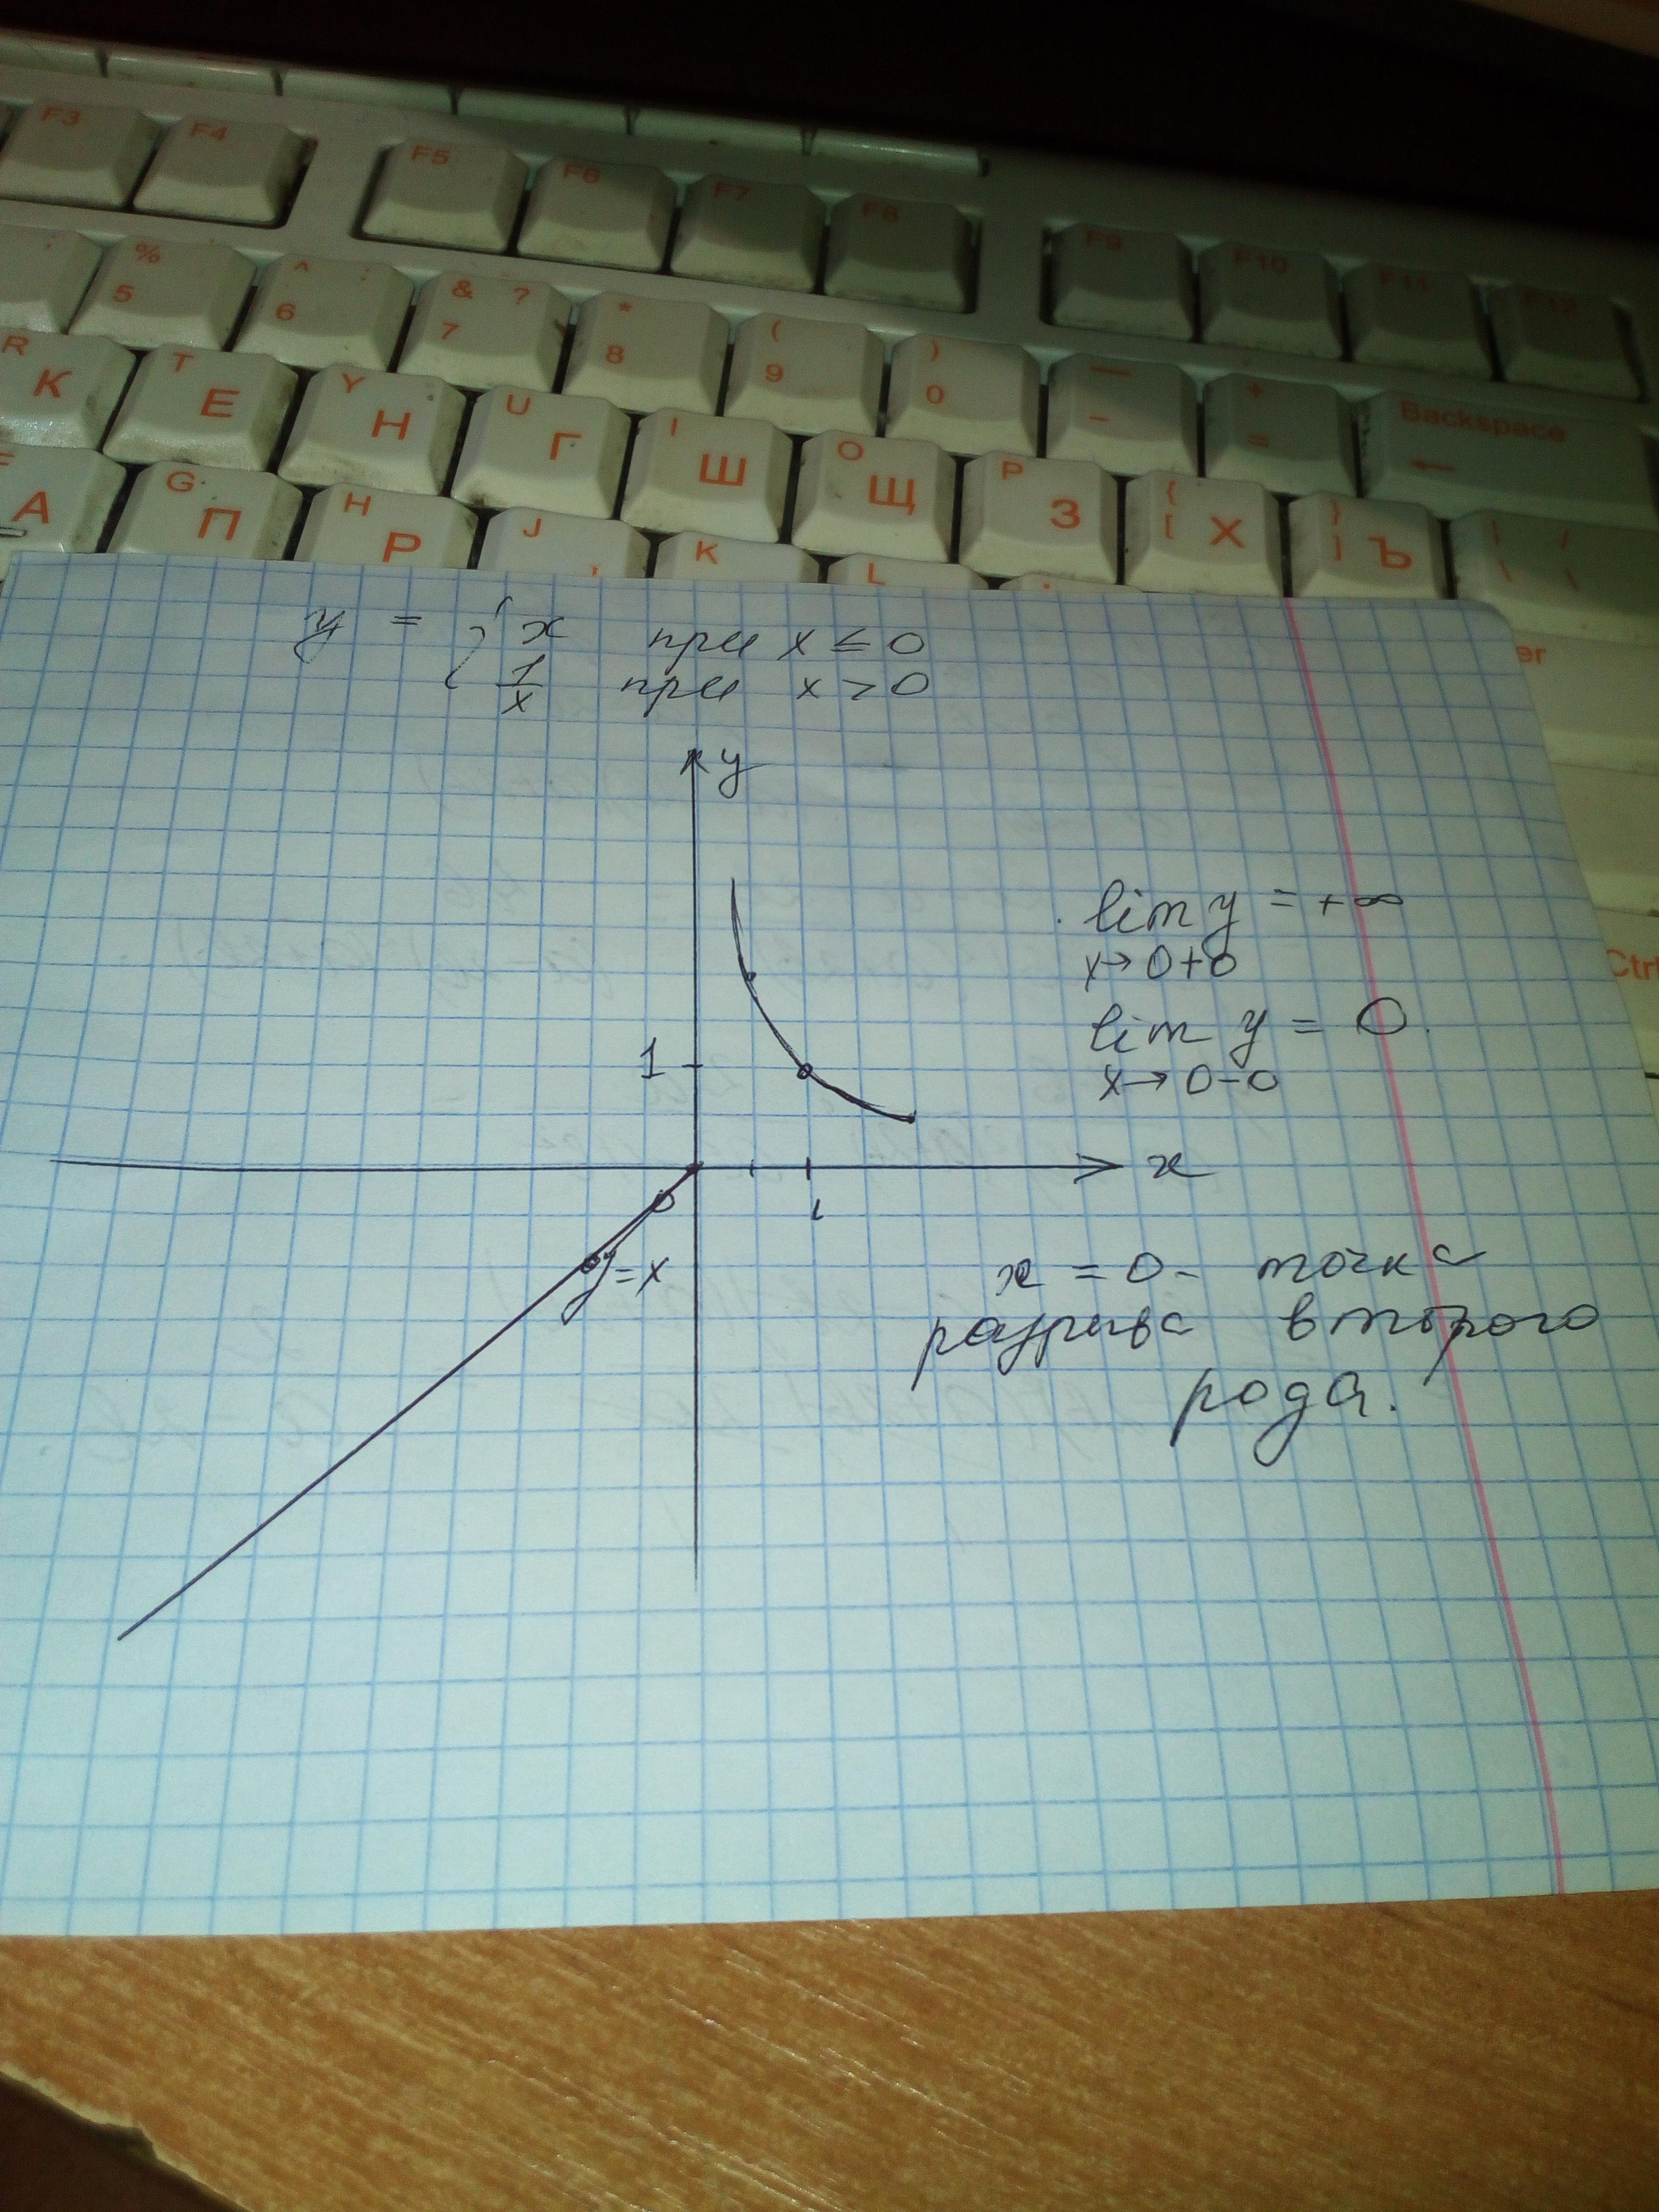 F3 F4 F5 F6 F7 F8 F9 F10 F11 F12
% 5 ^ : 6 & ? 7 * 8 ( 9 ) 0 — – + = Backspace ←
R К T Е Y Н U Г I Ш O Щ P З { [ Х } ] Ъ | / \ \
F А G П H Р J K L
er
Ctrl
y = { x при x ≤ 0
1/x при x > 0
y
lim y = +∞
x→0+0
lim y = 0
x→0-0
1
x
1
y=x
x = 0 - точка
разрыва второго
рода.